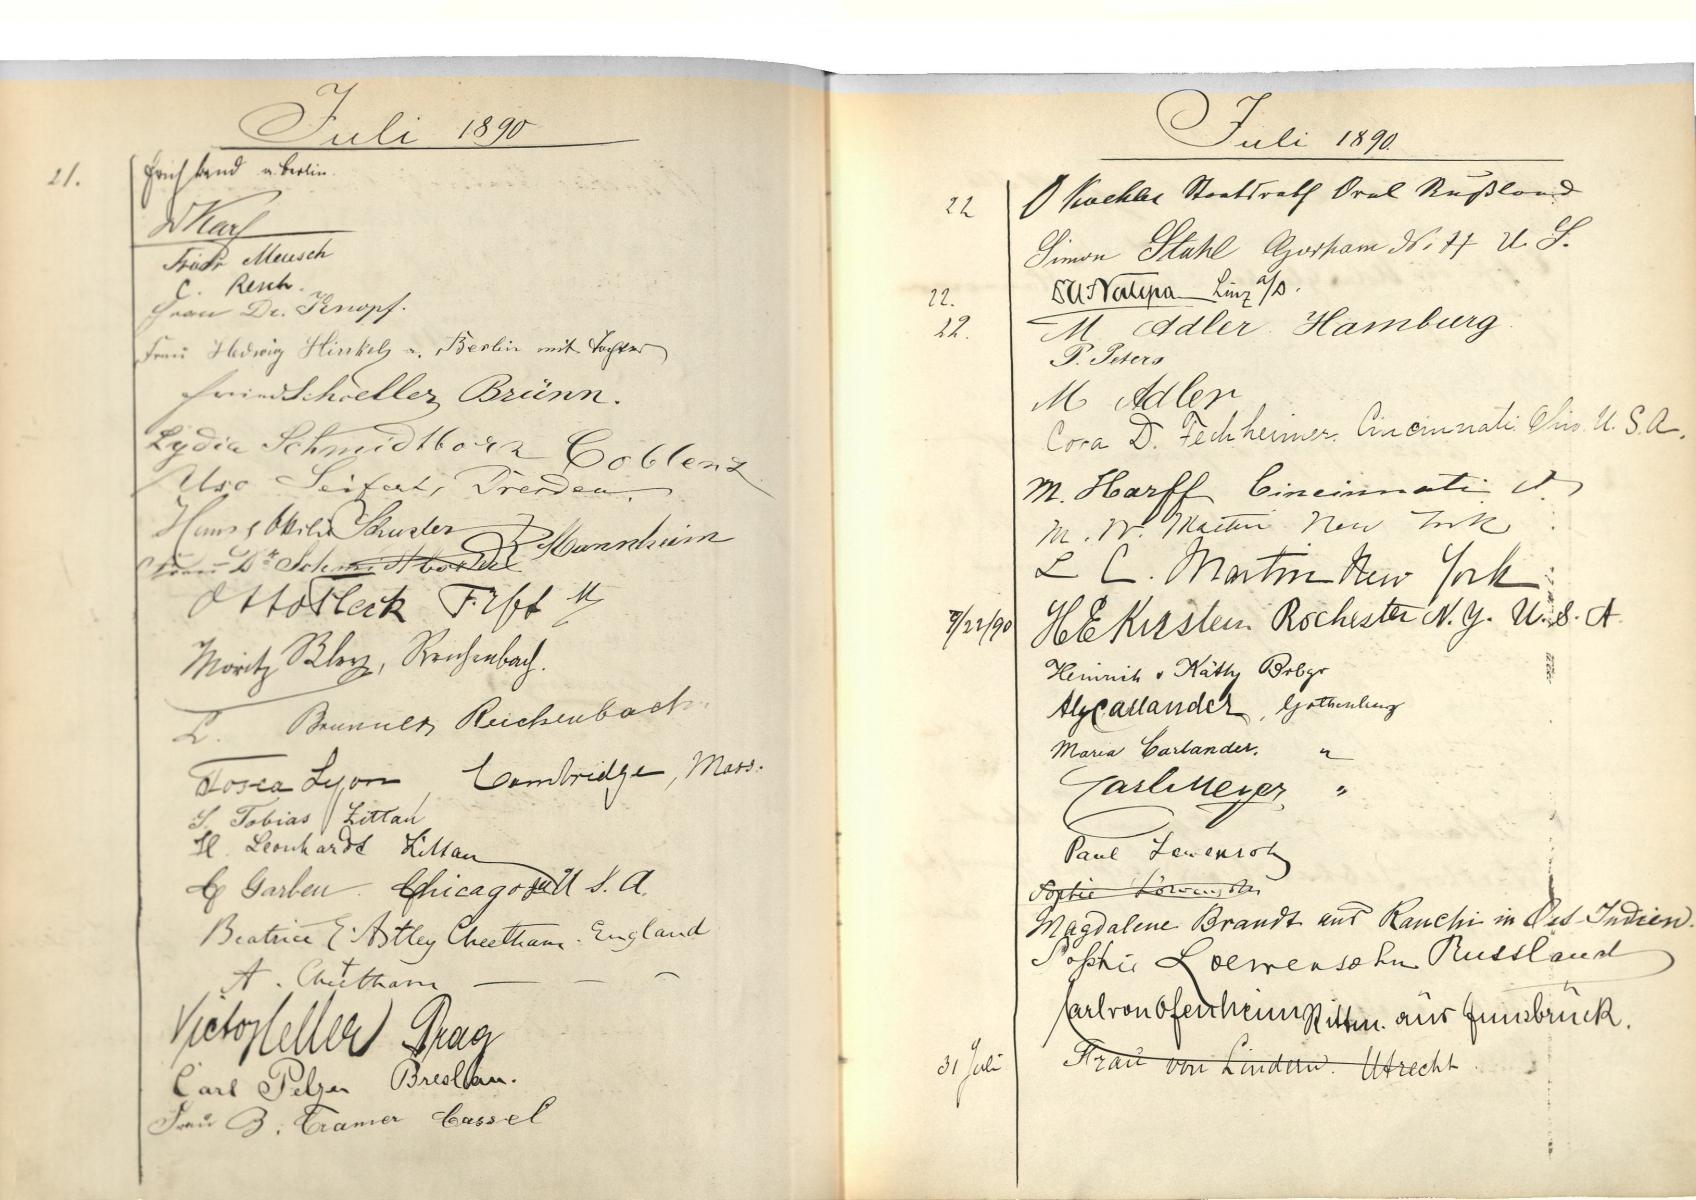 Juli 1890
21.
Berlin.
Meusch
C. Resch.
Frau Dr. Knopf.
Frau Hedwig Hinkel a. Berlin mit Tochter
Schoeller Brünn.
Lydia Schmidtborn Coblenz
Uso Seifert, Dresden.
Hans & Ottilie Schuster
Mannheim
Frau Dr Schmidtborn
Otto Fleck
Moritz Reichenbach.
L. Brunner Reichenbach.
Tosca Lyon, Cambridge, Mass.
S. Tobias Zittau
H. Leonhardt Zittau
C Garben Chicago U S. A.
Beatrice E. Astley Cheetham. England
A. Cheetham — — —
Victor Heller Prag
Carl Pelzer Breslau.
Frau B. Cramer Cassel
Juli 1890.
22 O Koehler Staatsrath Orel Rußland
Simon Stahl Gorham N. H U. S.
22. Linz a/D.
22. M Adler Hamburg
P. Peters
M Adler
Cora D. Fechheimer. Cincinnati Ohio. U. S. A.
M. Harff Cincinnati O
M. W. Martin New York
L C. Martin New York
7/22/90 H E Kirstein Rochester N. Y. U. S. A.
Heinrich & Käthy
Carlander, Gothenburg
Maria Carlander. "
Carl Meyer "
Paul Lewensohn
Sophie Löwensohn
Magdalene Brandt aus Ranchi in Ost Indien.
Sophie Loewensohn Russland
Carl von Ofenheim Rittm. aus Innsbrück.
31 Juli Frau von Linden. Utrecht